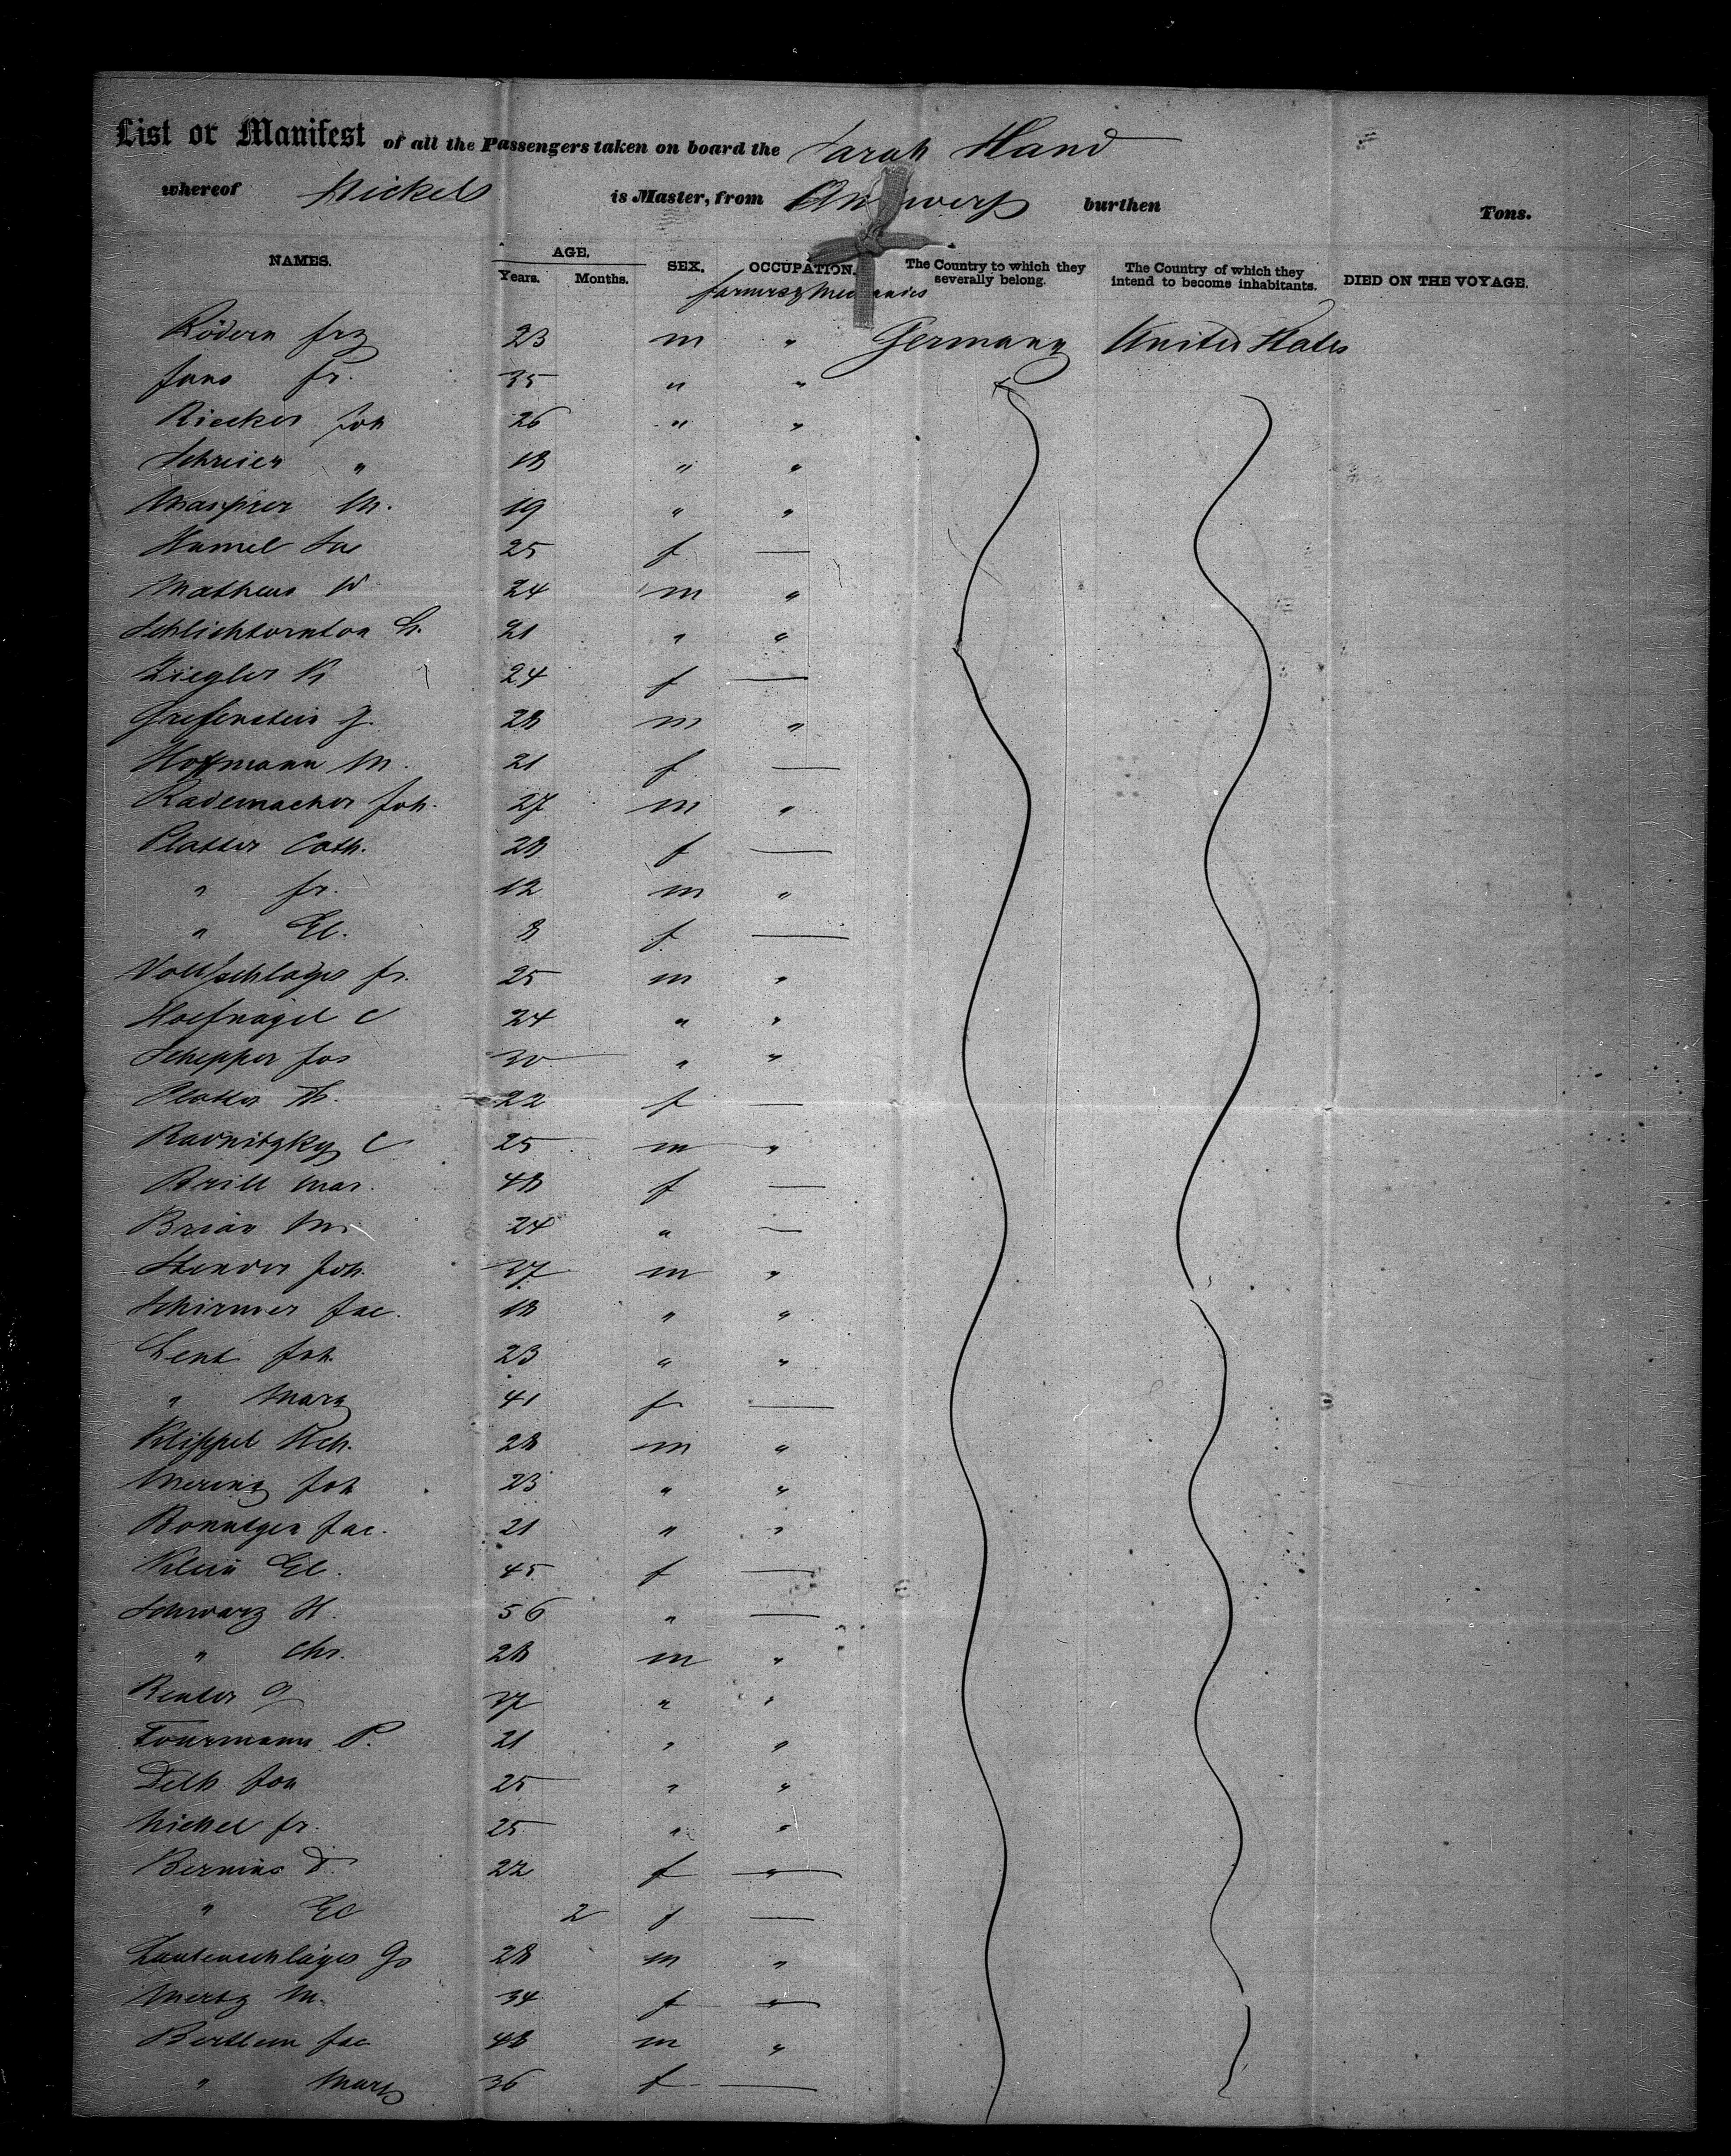 List or Manifest of all the Passengers taken on board the Sarah Hand
whereof Nickels is Master, from Antwerp burthen Tons.
NAMES. AGE. Years. Months. SEX. OCCUPATION. The Country to which they severally belong. The Country of which they intend to become inhabitants. DIED ON THE VOYAGE.
farmers & Mechanics
Rödern frz 23 m " Germany United States
fr. 35 " "
Riecker Joh 26 " "
Schreier " 18 " "
M. 19 " "
Hamel 25 f —
Matheus W 24 m "
21 " "
Ziegler K 24 f —
Grefenstein J. 28 m "
Hoffmann M. 21 f —
Rademacher Joh. 27 m "
Platter Cath. 28 f —
" fr. 12 m "
" El. 8 f —
fr. 25 m "
Hoefnagel C 24 " "
Schepper Jos 30 " "
Platter Th. 22 f —
Ravnitzky C 25 m "
Brill Mar. 48 f —
Brian M. 24 " —
Stender Joh. 27 m "
Schirmer Jac. 18 " "
Lent Joh. 23 " "
" Mary 41 f —
Klippel Hch. 28 m "
Mering Joh 23 " "
Jac. 21 " "
Klein El. 45 f —
Schwarz H. 56 " —
" Chr. 28 m "
G 27 " "
Tourmann P. 21 " "
Delh Joh 25 " "
Nichel fr. 25 " "
Bernins D. 22 f "
" El 2 f —
Lautenschläger Go 28 m "
Mertz M. 34 f "
Jac 48 m "
" Mary 36 f —